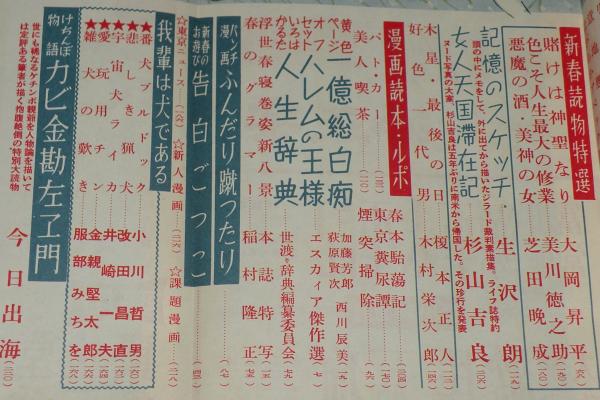 新春読物特選
賭けは神聖なり 大岡昇平
色こそ人生最大の修業 美川徳之助
悪魔の酒・美神の女 芝田晩成
記憶のスケッチ 生沢朗
頭の中にメモをして、外に出てから描いたジラード裁判素描集。ライフ誌特約
女人天国滞在記 杉山吉良
ヌード写真の大家、杉山吉良は五年ぶりに南米から帰国した。その珍行を発表
木星・最後の日 榎本正人
好色一代男 木村栄次郎
漫画読本・ルポ
パト・カー 春本駘蕩記
美人喫茶 東京糞尿譚
煙突掃除
黄色ページ 一億総白痴 加藤芳郎 荻原賢次 西川辰美
オフセット ハレムの王様 エスカイア傑作選
いろはかるた 人生辞典 世渡り辞典編纂委員会
浮世春寝巻姿新八景 本誌特写
春のグラマー 稲村隆正
パンチ漫画 ふんだり蹴ったり
新春のお遊び 告白ごっこ
☆東京ニュース ☆新人漫画 ☆課題漫画
我輩は犬である
★番犬ブルドック 小川哲男
★悲しき猟犬 改田昌直
★宇宙犬ライカ 井崎一夫
★愛玩用チン 金親堅太郎
★雑犬の歎き 服部みちを
けちんぼ物語 カビ金勘左エ門 今日出海
世にも稀なるケチンボ親爺を人物論を描いては定評ある筆者が描く抱腹絶倒の特別大読物